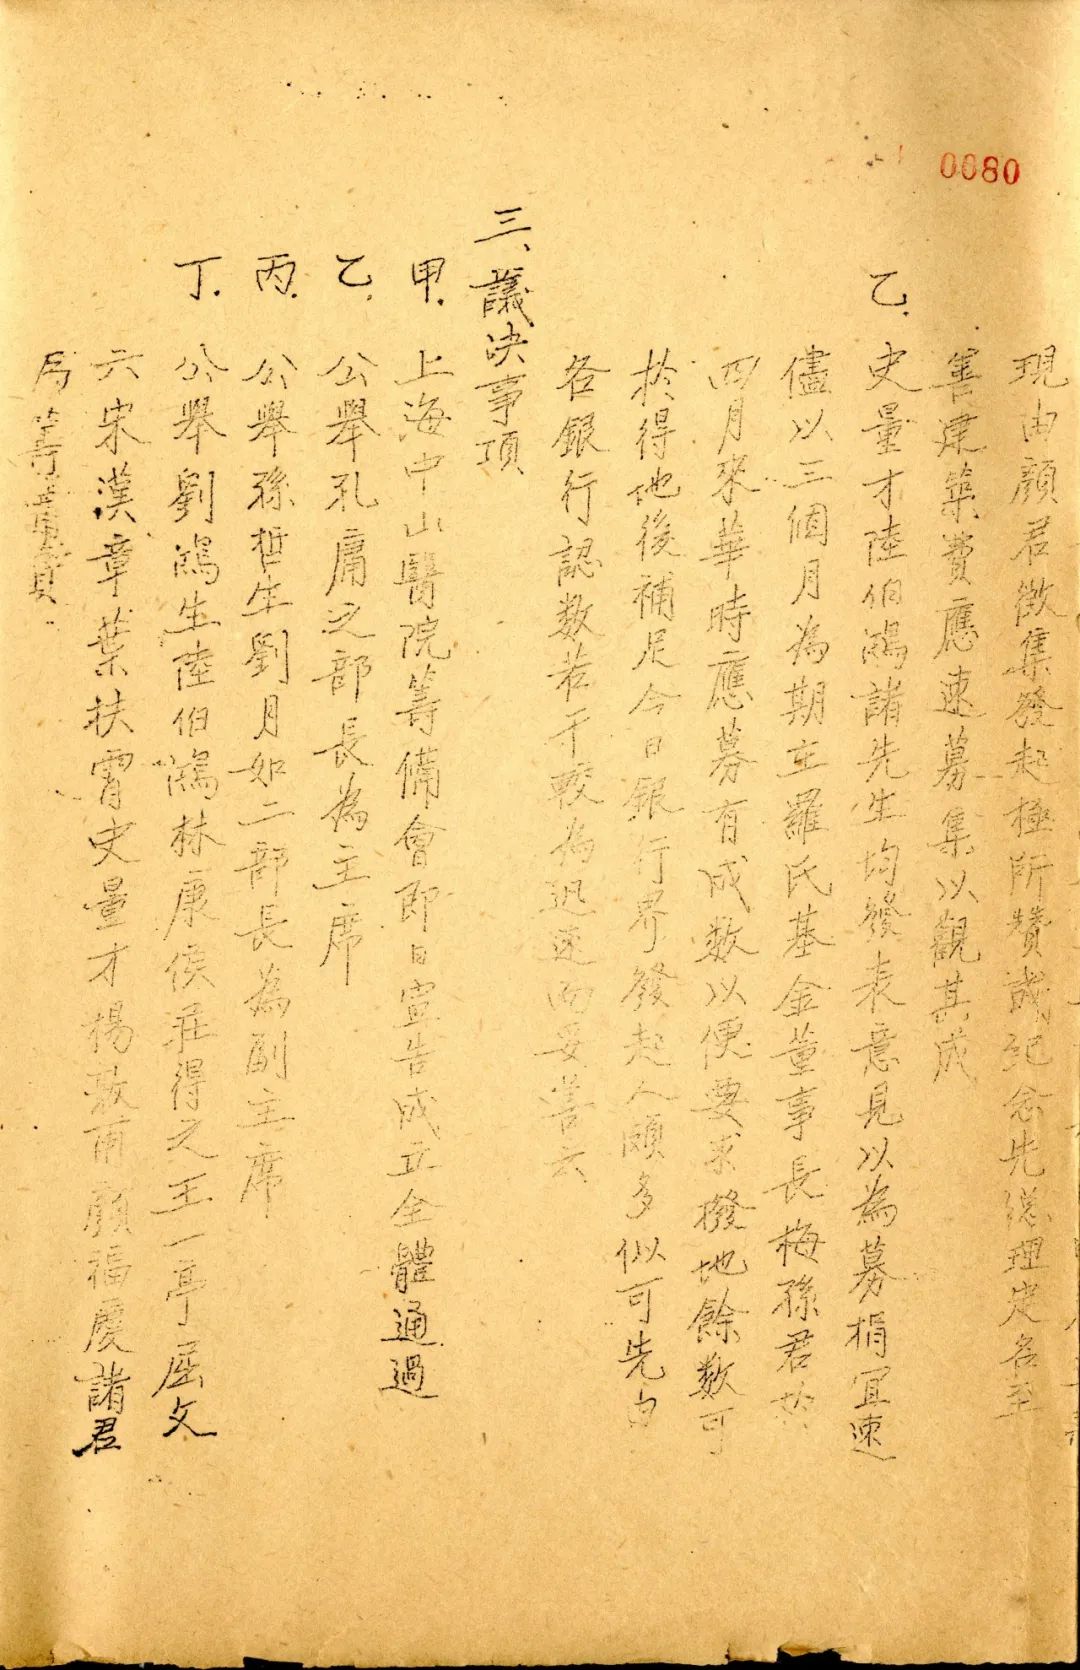 0080
現由顏君徵集發起極所贊成紀念先總理定名至
善建築費應速募集以觀其成
乙.史量才陸伯鴻諸先生均發表意見以為募捐宜速
儘以三個月為期立羅氏基金董事長梅孫君於
四月來華時應募有成數以便要求撥地餘數可
於得地後補足今日銀行界發起人頗多似可先由
各銀行認数若干較為迅速而妥善云
三、議決事項
甲.上海中山醫院籌備會即日宣告成立全體通過
乙.公舉孔庸之部長為主席
丙.公舉孫哲生劉月如二部長為副主席
丁.公舉劉鴻生陸伯鴻林康侯莊得之王一亭屈文
六宋漢章葉扶霄史量才楊敦甫顏福慶諸君
為籌備員.